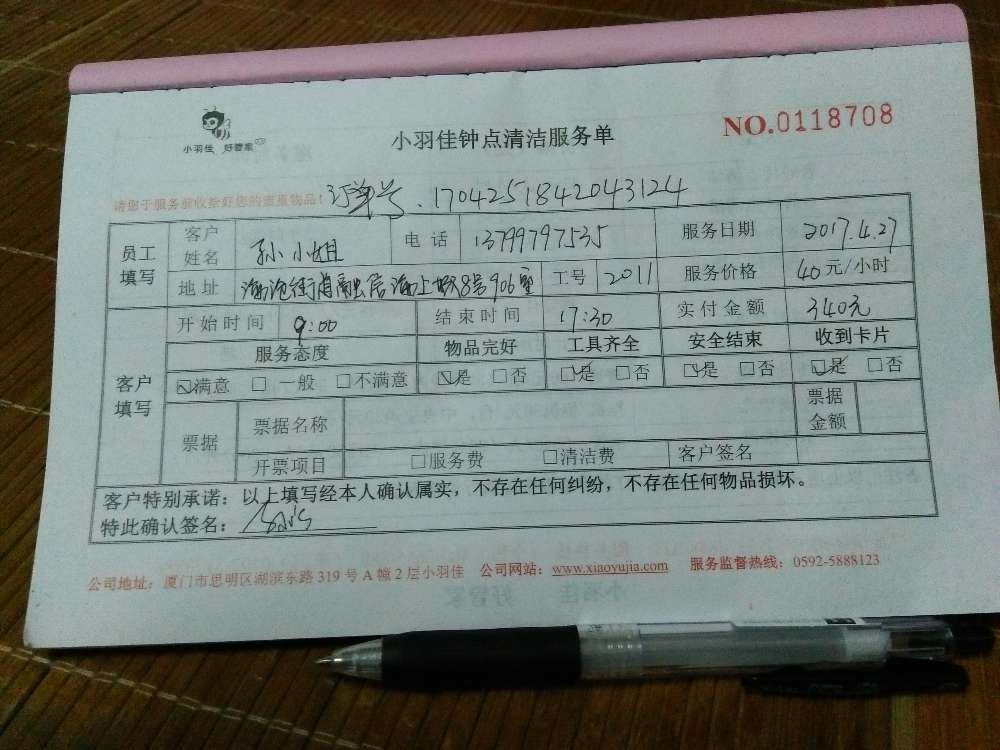 小羽佳 好管家
小羽佳钟点清洁服务单
NO.0118708
请您于服务前收拾好您的贵重物品！订单号.1704251842043124
员工填写 客户姓名 孙小姐 电话 13799797535 服务日期 2017.4.27
地址 海沧街道融居海上城8号906室 工号 2011 服务价格 40元/小时
客户填写 开始时间 9:00 结束时间 17:30 实付金额 340元
服务态度 物品完好 工具齐全 安全结束 收到卡片
☑满意 □ 一般 □不满意 ☑是 □否 ☑是 □否 ☑是 □否 ☑是 □否
票据 票据名称 票据金额
开票项目 □服务费 □清洁费 客户签名
客户特别承诺：以上填写经本人确认属实，不存在任何纠纷，不存在任何物品损坏。
特此确认签名：
公司地址：厦门市思明区湖滨东路 319 号 A 幢 2 层小羽佳 公司网站：www.xiaoyujia.com 服务监督热线：0592-5888123